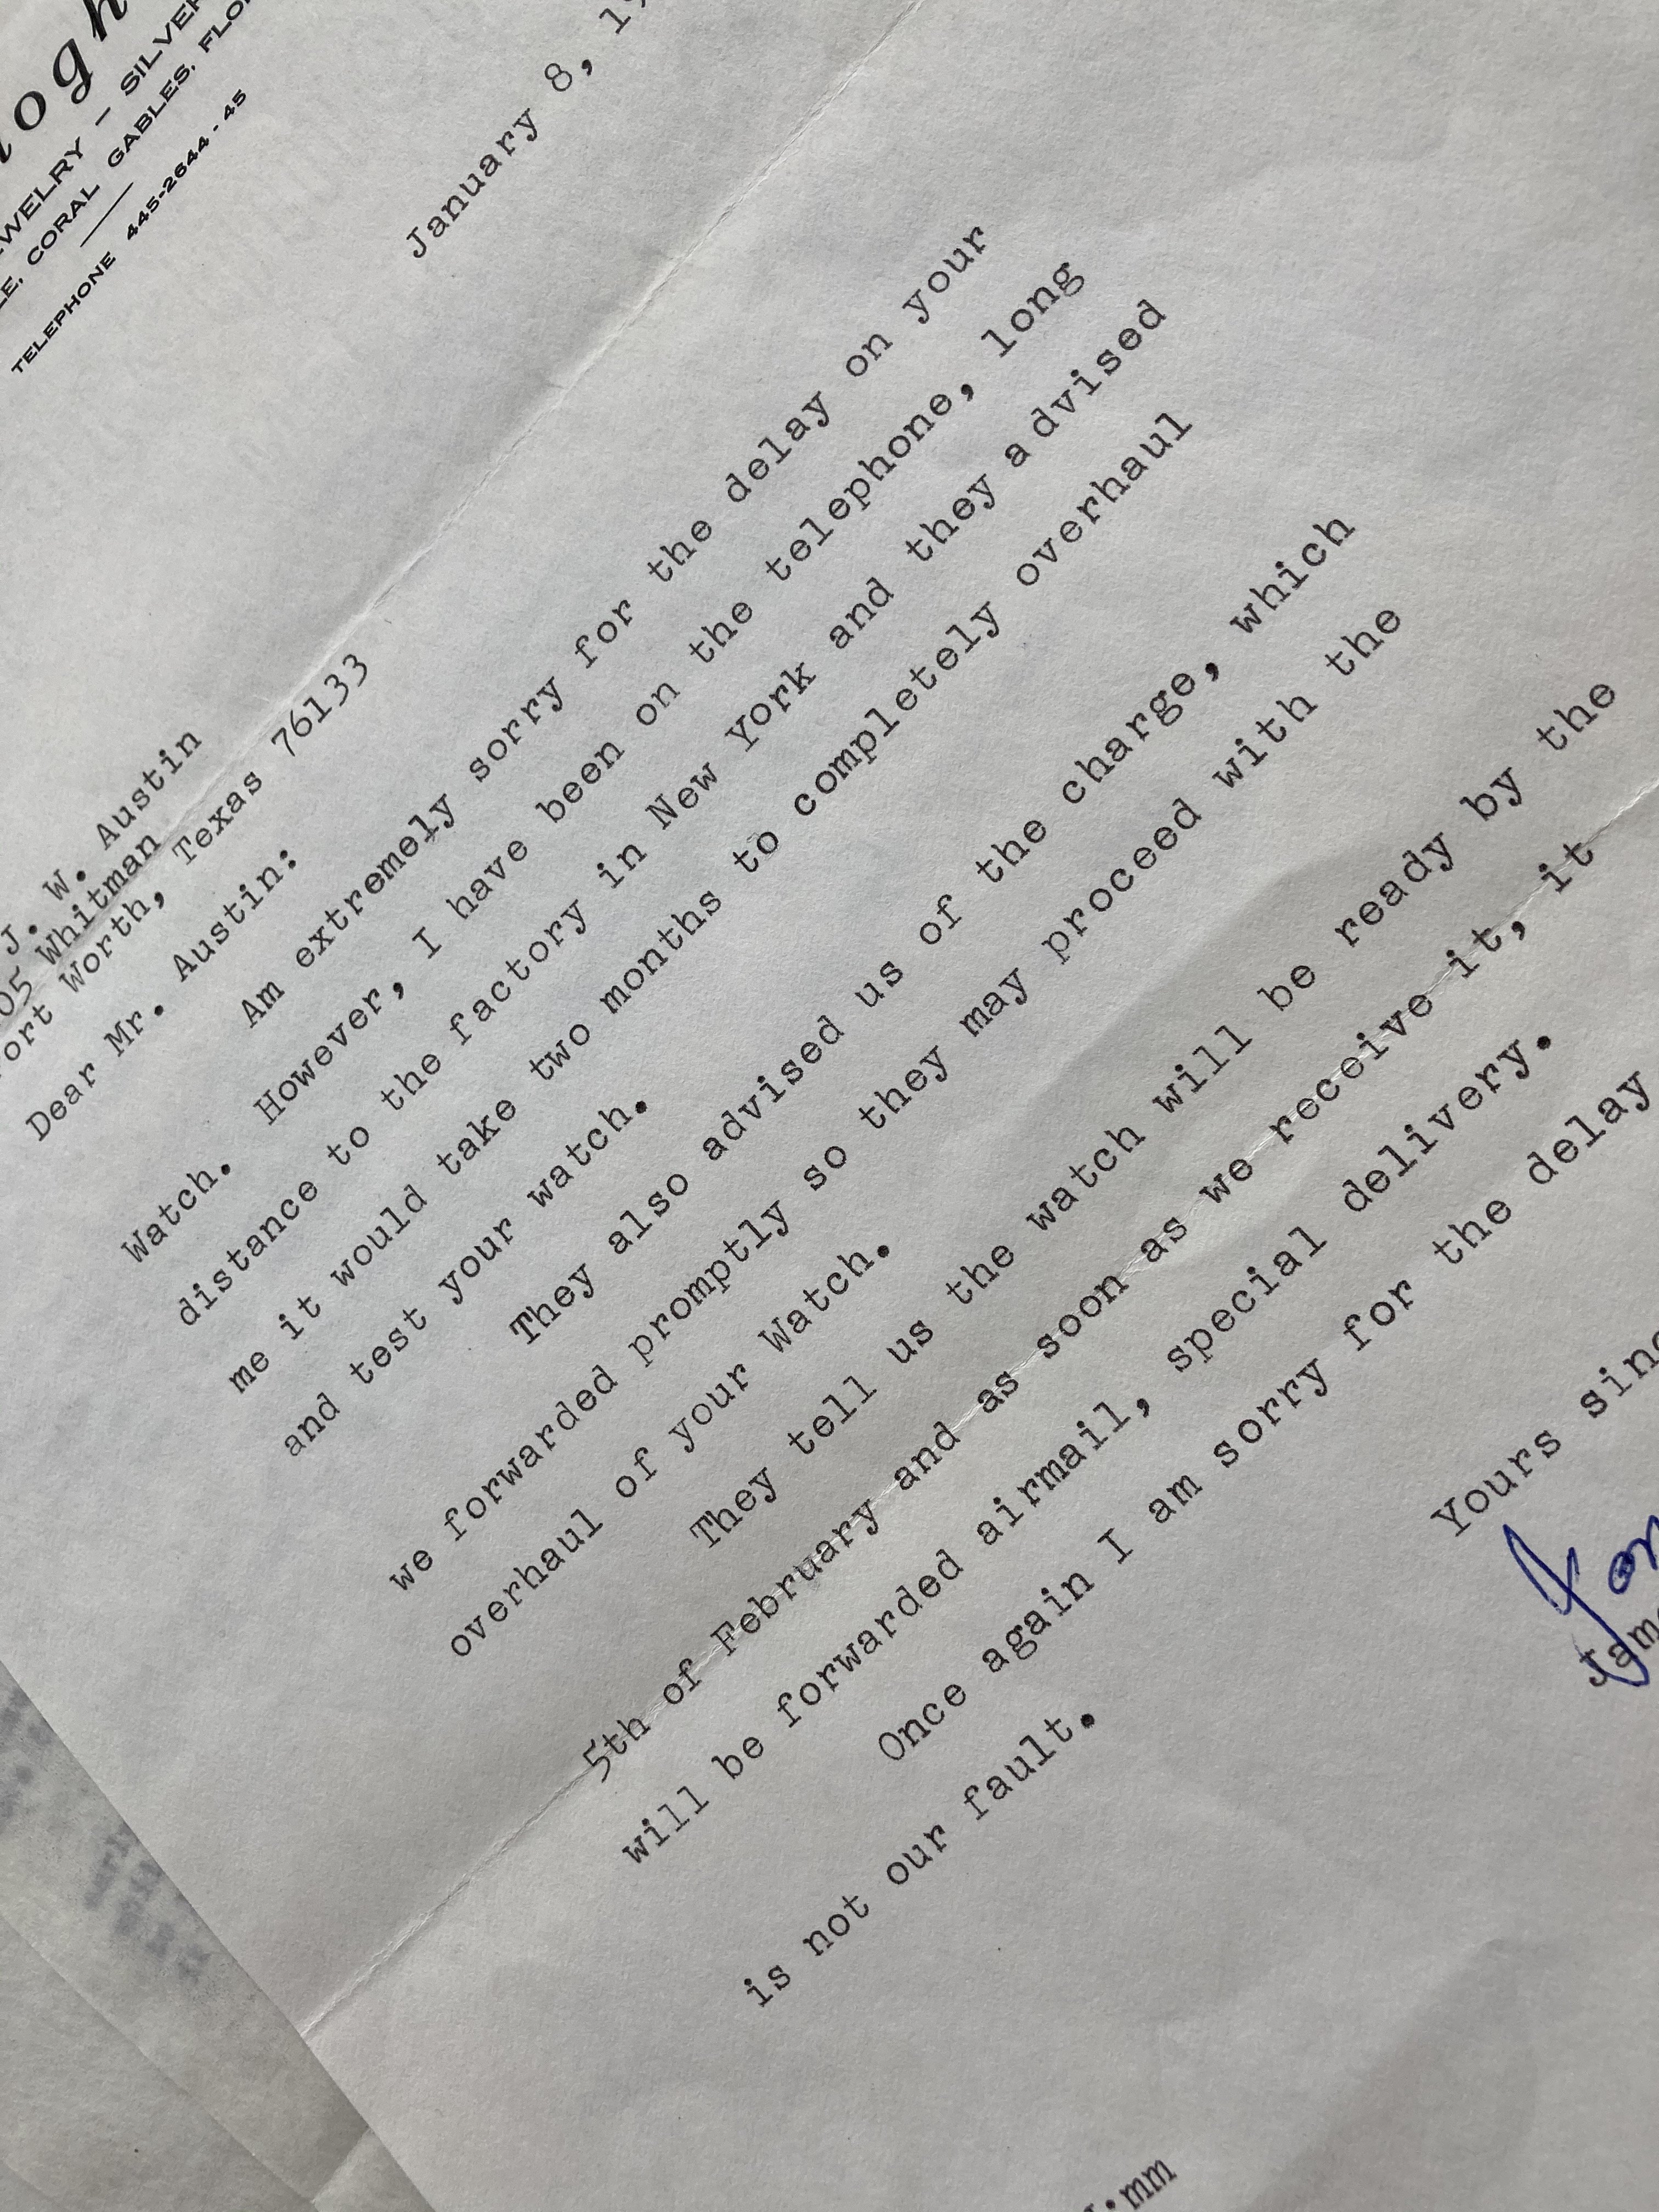 JEWELRY — SILVER
CORAL GABLES, FLO
TELEPHONE 445-2644 - 45
January 8, 19
J. W. Austin
05 Whitman
ort Worth, Texas 76133
Dear Mr. Austin:
Am extremely sorry for the delay on your
Watch.
However, I have been on the telephone, long
distance to the factory in New York and they advised
me it would take two months to completely overhaul
and test your watch.
They also advised us of the charge, which
we forwarded promptly so they may proceed with the
overhaul of your Watch.
They tell us the watch will be ready by the
5th of February and as soon as we receive it, it
will be forwarded airmail, special delivery.
Once again I am sorry for the delay
is not our fault.
Yours sinc
Jame